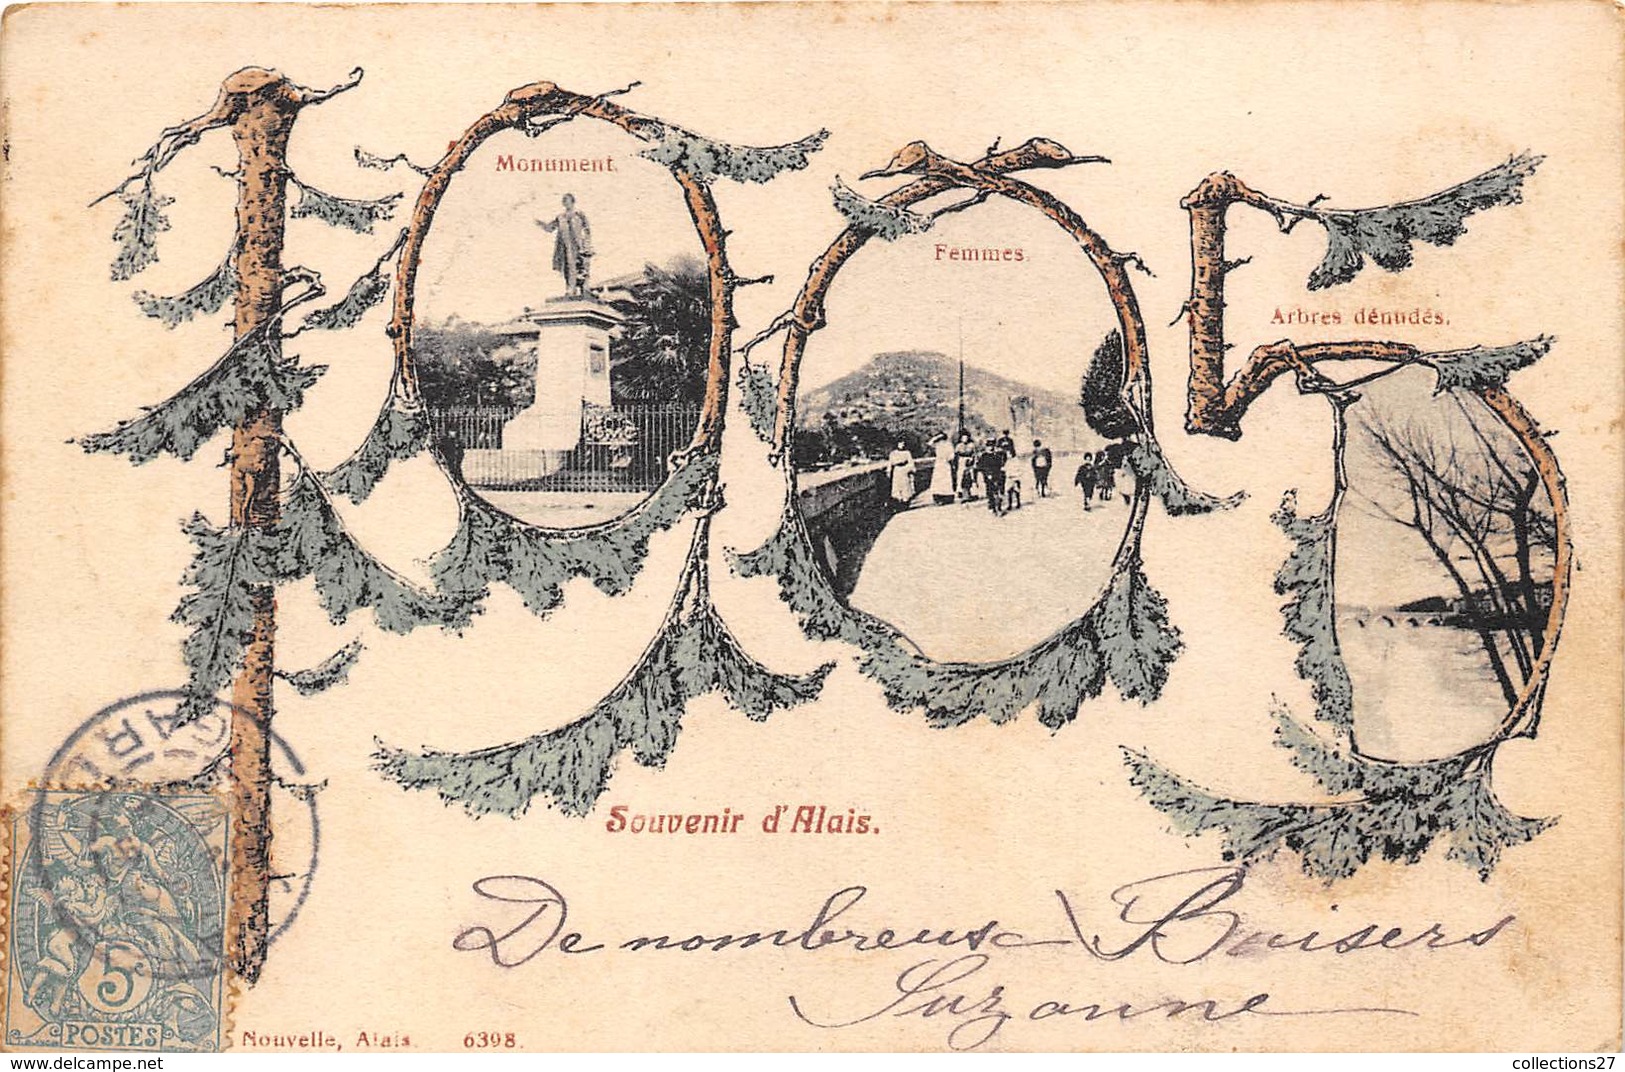 1905
Monument.
Femmes.
Arbres dénudés.
Souvenir d'Alais.
De nombreux Baisers
Suzanne
GARD
5c
POSTES
Nouvelle, Alais. 6398.
collections27